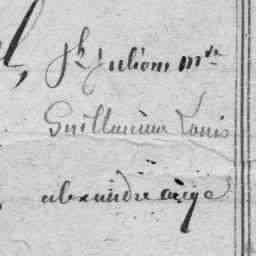 Jh Julions md
Guillaume Louis
alexandre agé